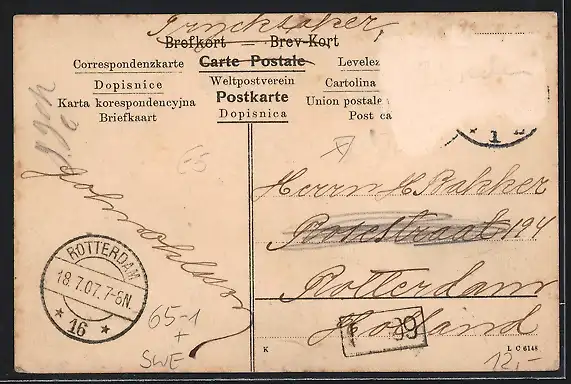 Trycksaker,
Brefkort — Brev-Kort
Correspondenzkarte Carte Postale Levelez
Dopisnice Weltpostverein Cartolina
Karta korespondencyjna Postkarte Union postale
Briefkaart Dopisnica Post ca
65
Herrn H Bakker
194
Rotterdam
Holland
ROTTERDAM
18.7.07.7-8N
* 16 *
1
65-1
+
SWE
69
K
L C 6148
12,-